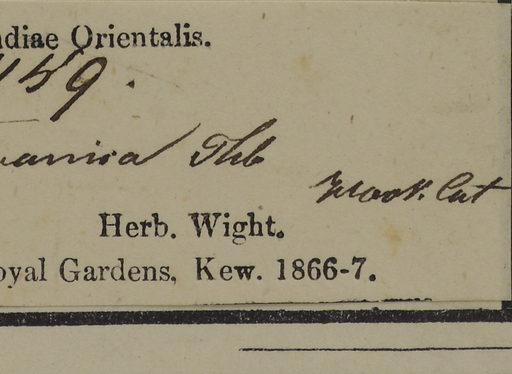 ndiae Orientalis.
159.
vanica Thb
Wook. Cat
Herb. Wight.
oyal Gardens, Kew. 1866-7.